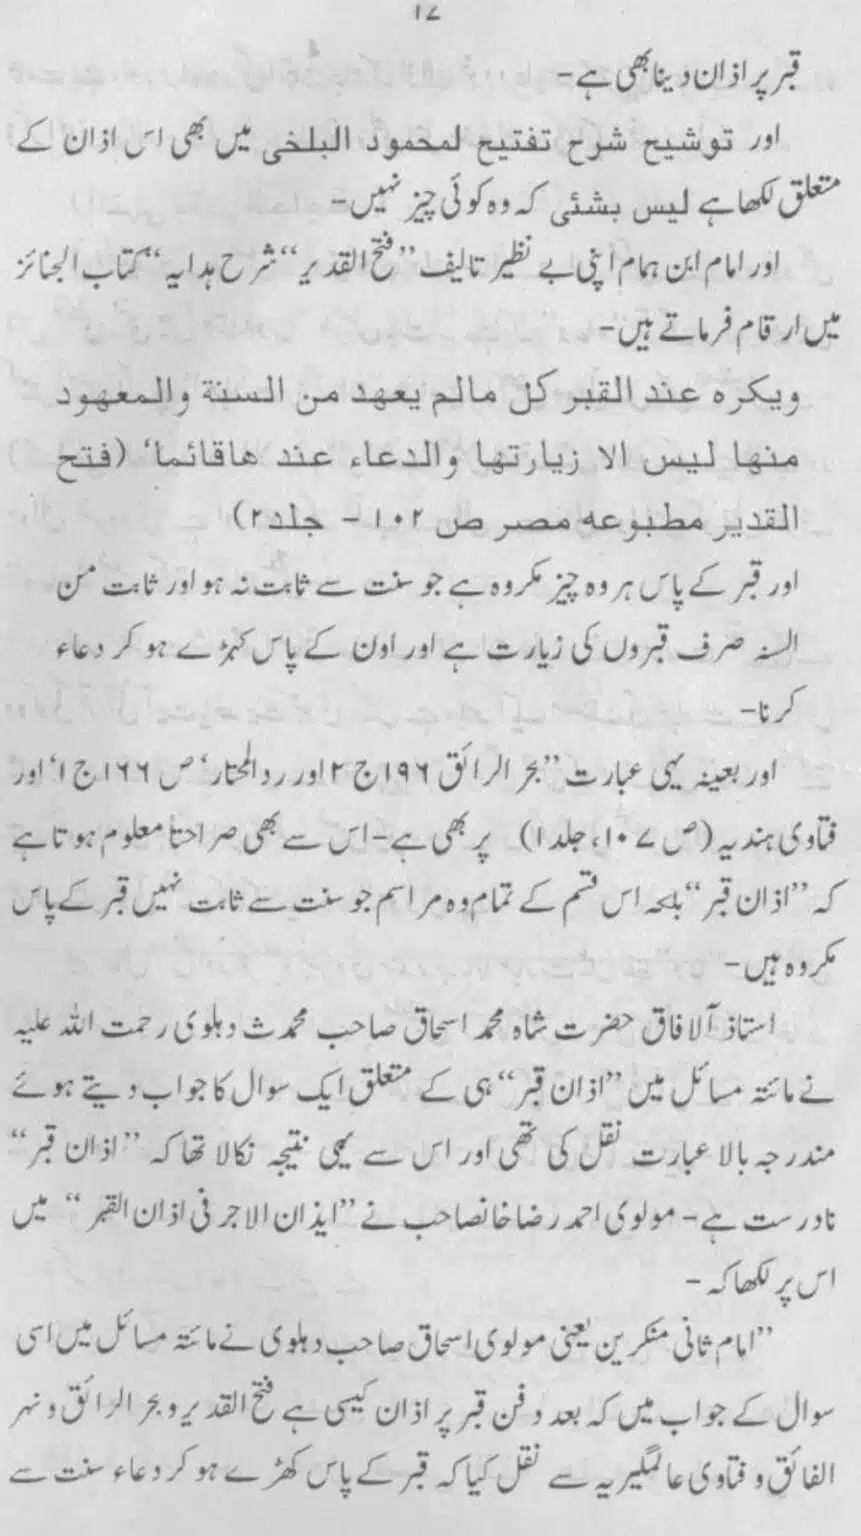 ۱۷
قبر پر اذان دینا بھی ہے-
اور توشیح شرح تفتیح لمحمود البلخی میں بھی اس اذان کے
متعلق لکھا ہے لیس بشئی کہ وہ کوئی چیز نہیں-
اور امام ابن ہمام اپنی بے نظیر تالیف ”فتح القدیر“ شرح ہدایہ“ کتاب الجنائز
میں ارقام فرماتے ہیں-
ویکرہ عند القبر کل مالم یعھد من السنة والمعھود
منھا لیس الا زیارتھا والدعاء عند ھاقائما‘ (فتح
القدیر مطبوعہ مصر ص ۱۰۲ - جلد۲)
اور قبر کے پاس ہر وہ چیز مکروہ ہے جو سنت سے ثابت نہ ہو اور ثابت من
السنہ صرف قبروں کی زیارت ہے اور اون کے پاس کہڑے ہو کر دعاء
کرنا-
اور بعینہ یہی عبارت ”بحر الرائق ۱۹۶ ج ۲ اور ردالمحتار‘ ص ۱۶۶ ج ۱‘ اور
فتاوی ہندیہ (ص ۱۰۷، جلد ۱) پر بھی ہے- اس سے بھی صراحتاً معلوم ہوتا ہے
کہ ”اذان قبر“ بلحہ اس قسم کے تمام وہ مراسم جو سنت سے ثابت نہیں قبر کے پاس
مکروہ ہیں-
استاذ آلافاق حضرت شاہ محمد اسحاق صاحب محمدث دہلوی رحمت اللہ علیہ
نے مائتہ مسائل میں ”اذان قبر“ ہی کے متعلق ایک سوال کا جواب دیتے ہوئے
مندرجہ بالا عبارت نقل کی تھی اور اس سے یہی نتیجہ نکالا تھا کہ ”اذان قبر“
نادرست ہے- مولوی احمد رضا خانصاحب نے ”ایذان الاجر فی اذان القبر“ میں
اس پر لکھا کہ-
”امام ثانی منکرین یعنی مولوی اسحاق صاحب دہلوی نے مائتہ مسائل میں اسی
سوال کے جواب میں کہ بعد دفن قبر پر اذان کیسی ہے فتح القدیر و بحر الرائق و نہر
الفائق و فتاوی عالمگیریہ سے نقل کیا کہ قبر کے پاس کھڑے ہو کر دعاء سنت سے